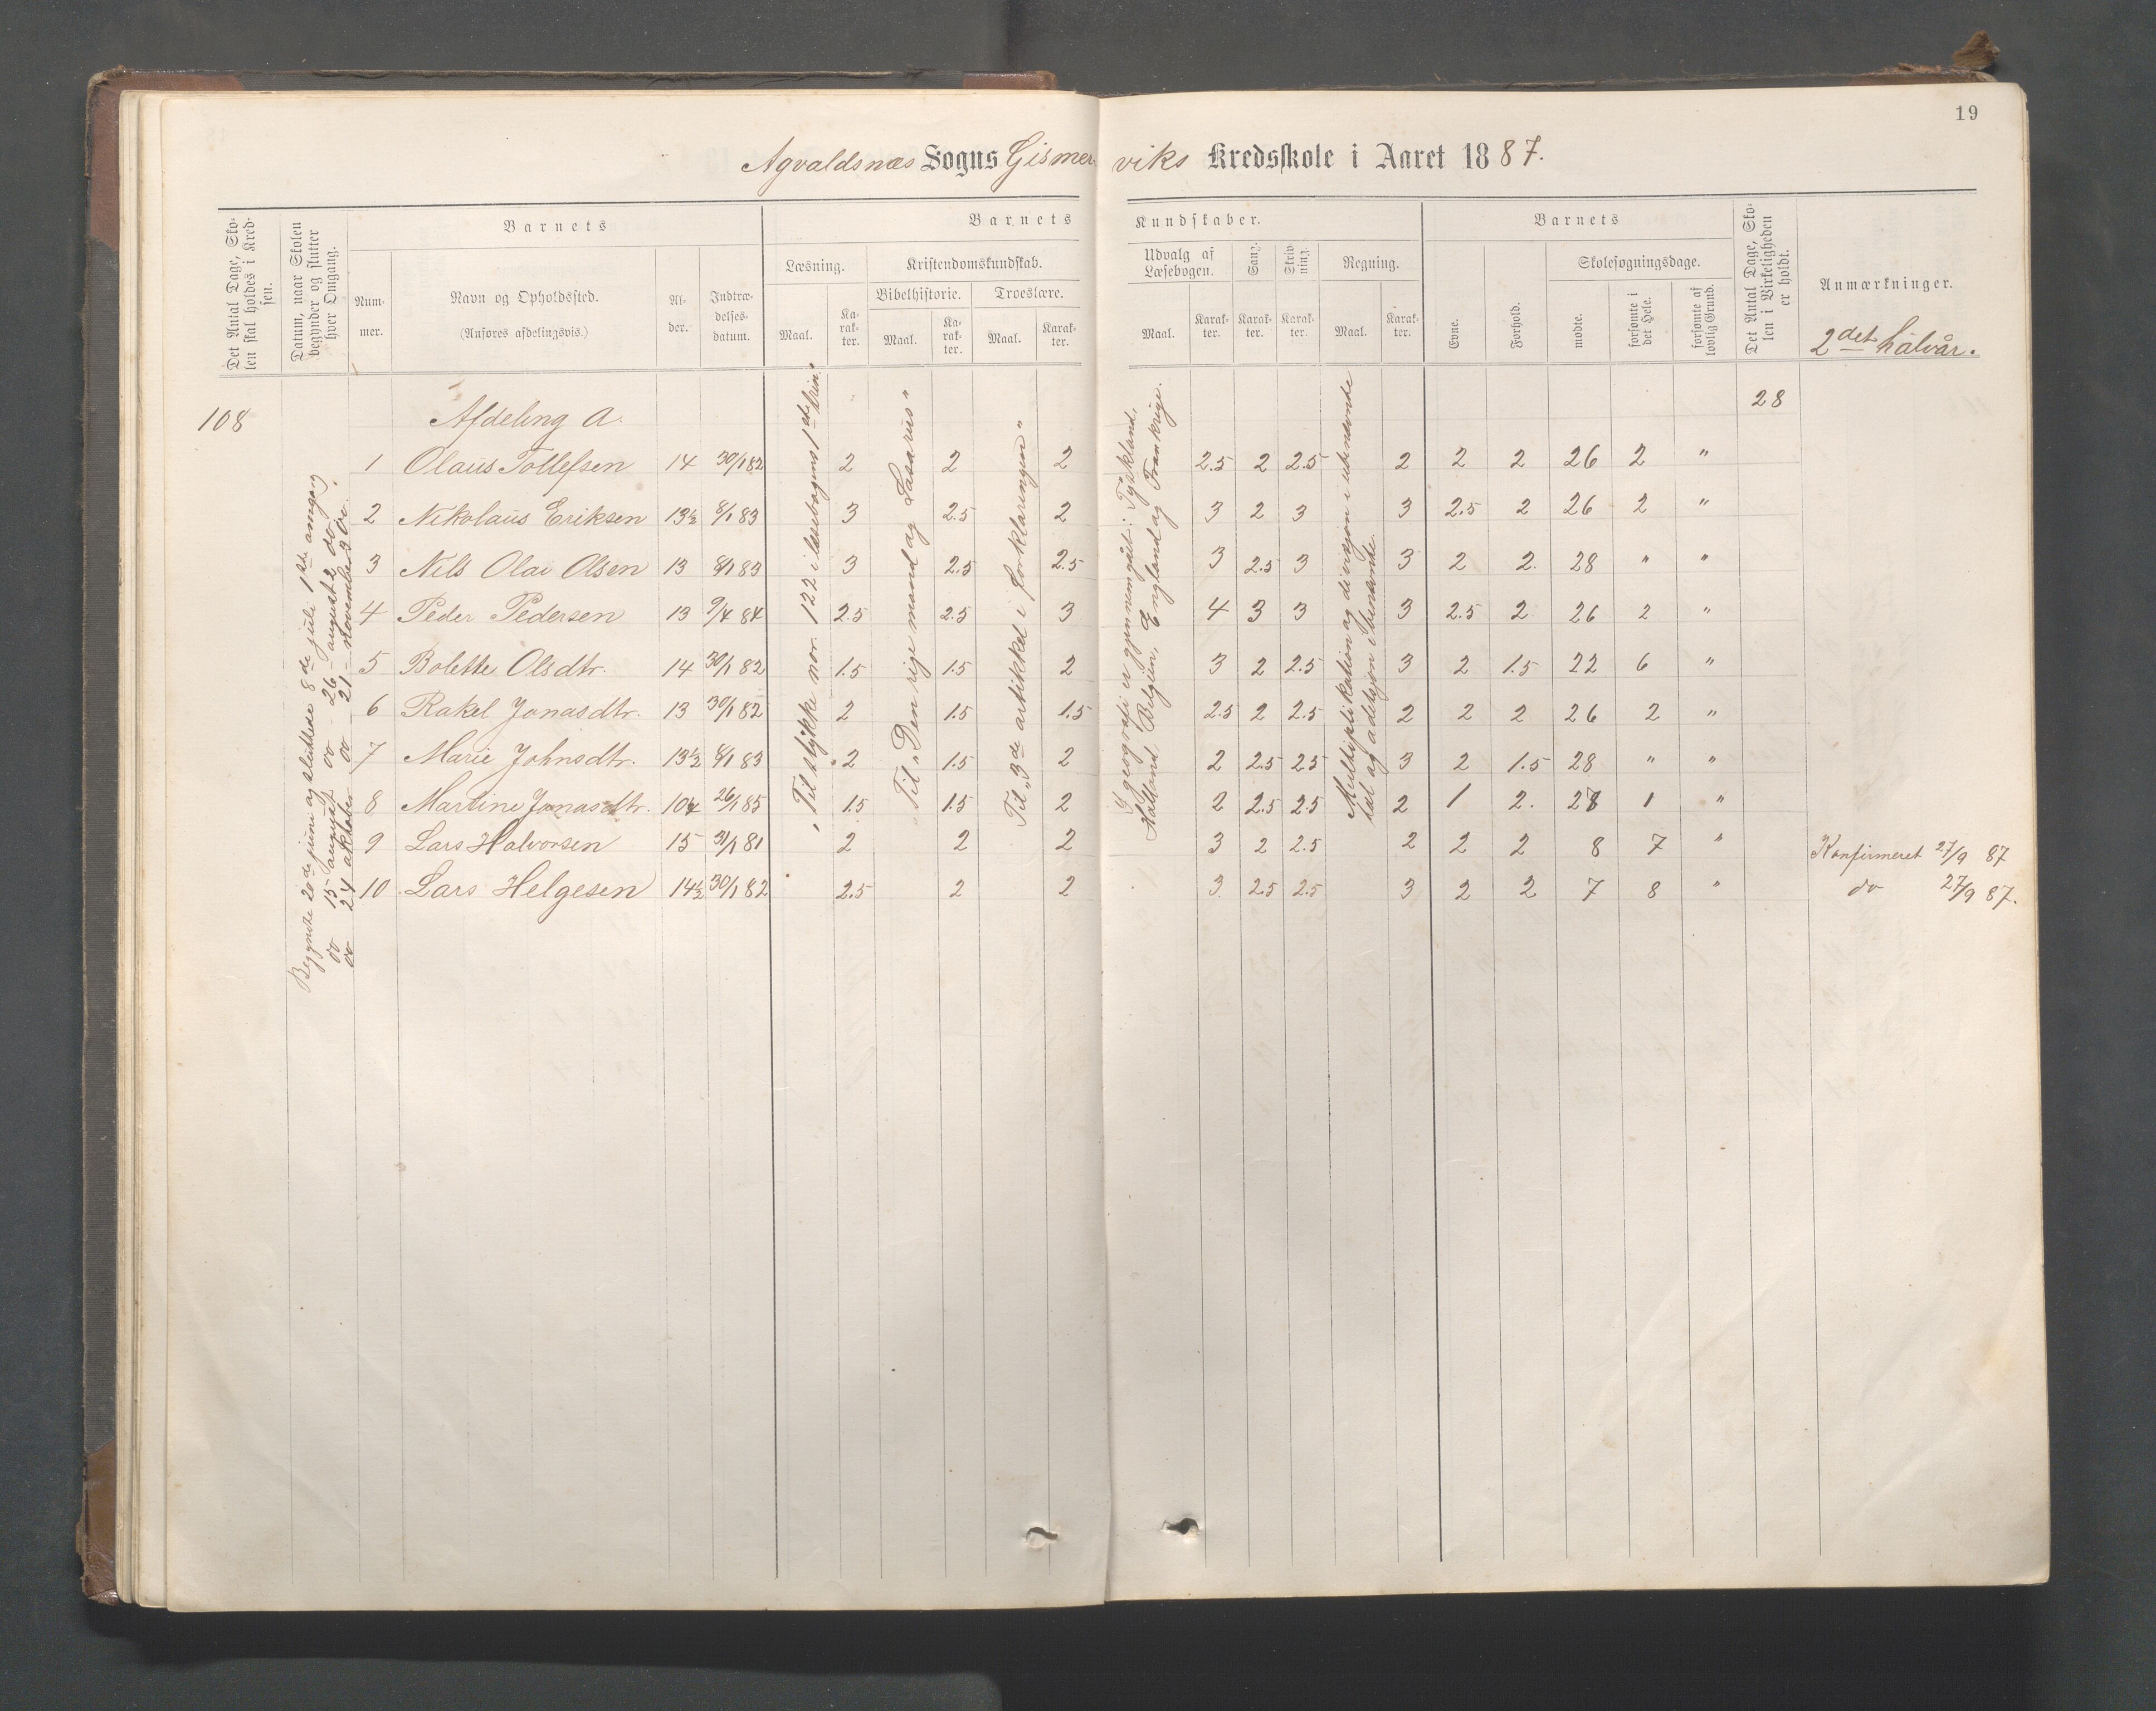 19
Agvaldsnæs Sogns Gismerviks Kredsskole i Aaret 1887.
Det Antal Dage, Skolen skal holdes i Kredsen.
Datum, naar Skolen begynder og slutter hver Omgang.
Barnets
Nummer.
Navn og Opholdssted.
(Anføres afdelingsvis.)
Alder.
Indtrædelsesdatum.
Barnets Kundskaber.
Læsning.
Maal.
Karakter.
Kristendomskundskab.
Bibelhistorie.
Maal.
Karakter.
Troeslære.
Maal.
Karakter.
Udvalg af Læsebogen.
Maal.
Karakter.
Sang.
Karakter.
Skrivning.
Karakter.
Regning.
Maal.
Karakter.
Barnets
Evne.
Forhold.
Skolesøgningsdage.
mødte.
forsømte i det Hele.
forsømte af lovlig Grund.
Det Antal Dage, Skolen i Virkeligheden er holdt.
Anmærkninger.
2det halvår.
108
Afdeling A.
28
1 Olaus Tollefsen 14 30/1 82 2 2 2 2.5 2 2.5 2 2 2 26 2 "
2 Nikolaus Eriksen 13½ 8/1 83 3 2.5 2 3 2 3 3 2.5 2 26 2 "
3 Nils Olai Olsen 13 8/1 83 3 2.5 2.5 3 2.5 3 3 2 2. 28 " "
4 Peder Pedersen 13 9/4 84 2.5 2.5 3 4 3 3 3 2.5 2 26 2 "
5 Bolette Olsdtr. 14 30/1 82 1.5 1.5 2 3 2 2.5 3 2 1.5 22 6 "
6 Rakel Jonasdtr. 13 30/1 82 2 1.5 1.5 2.5 2 2.5 2 2 2 26 2 "
7 Marie Johnsdtr. 13½ 8/1 83 2 1.5 2 2 2.5 2.5 3 2 1.5 28 " "
8 Martine Jonasdtr. 10¼ 26/1 85 1.5 1.5 2 2 2.5 2.5 2 1 2. 27 1 "
9 Lars Halvorsen 15 31/1 81 2 2 2 3 2 2.5 2 2 2 8 7 " Konfirmeret 27/9 87
10 Lars Helgesen 14½ 30/1 82 2.5 2 2 3 2.5 2.5 3 2 2 7 8 " do 27/9 87.
Begyndte 20de juni og sluttede 8de juli 1ste omgang
do 15 august do 26 august 2 do
do 24 oktober do 21 november 3 do.
"Til stykke nor. 122 i læsebogens 1ste trin"
"Til "Den rige mand og Lasarus"
Til "3de artikkel i forklaringen"
I geografi er gjennemgået: Tyskland,
Holland, Belgien, England og Frankrige.
Multiplikation og divisjon i ubenævnte
tal og adisjon i benævnte.